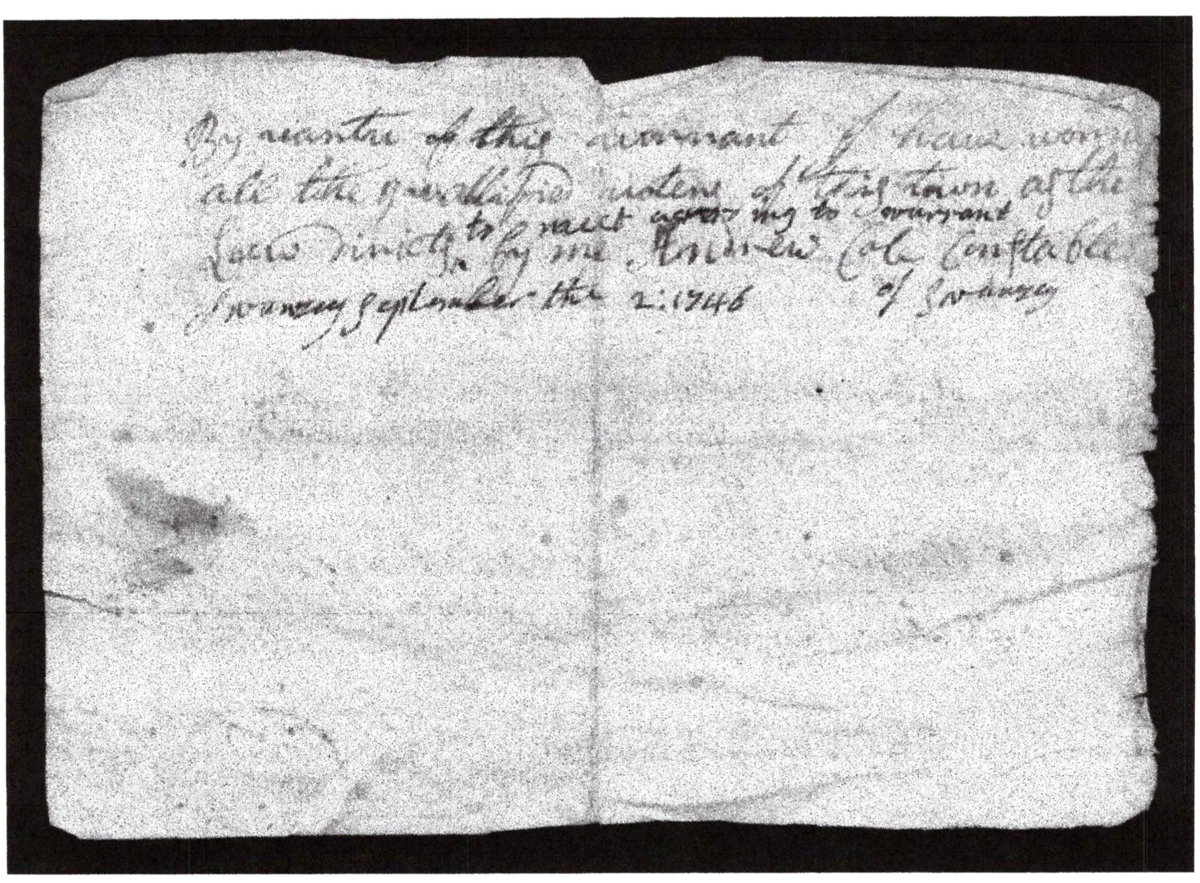 By vartu of this warrant I have worn
all the quallified voters of this town as the
to meet according to warrant
Law diricts ^ by me Andrew Cole Constable
Swanzey September the 2: 1746 of Swanzey